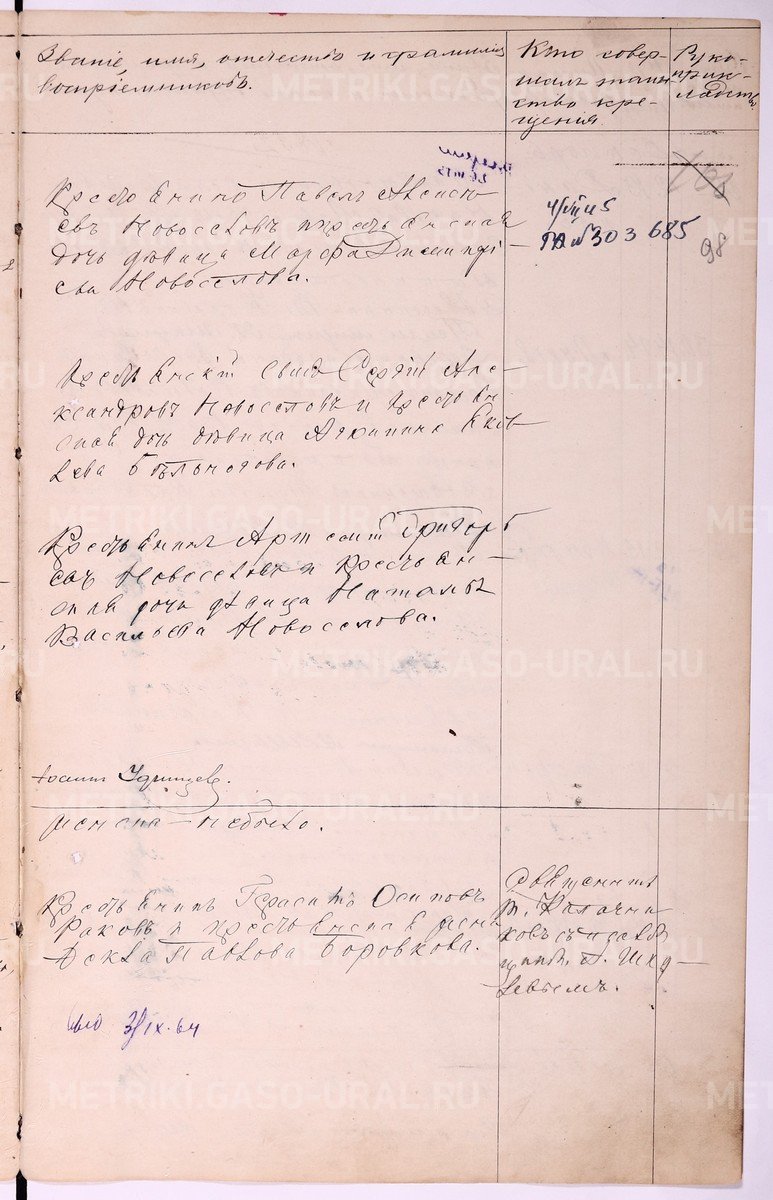 Званіе, имя, отчество и фамилія
воспріемниковъ.
Кто совер-
шалъ таин
ство кре-
щенія.
Руко-
прик-
ладств
103
98
Крестьянинъ Павелъ Алексѣ
евъ Новоселовъ и крестьянская
дочь дѣвица Марфа Дементі
ева Новоселова.
№ 303685
Крестьянскій сынъ Сергѣй Але-
ксандровъ Новоселовъ и крестьян
ская дочь дѣвица
Бѣлоногова.
Крестьянинъ Григорь
евъ Новоселовъ и крестьян-
ская дочь дѣвица Наталья
Васильева Новоселова.
Іоаннъ Удинцевъ.
не было.
Крестьянинъ Герасимъ Осиповъ
Раковъ и крестьянская жена
Ѳекла Павлова Боровкова.
Священникъ
Калачни
ковъ съ псалом
Шка
левымъ.
3/IX-64
METRIKI.GASO-URAL.RU